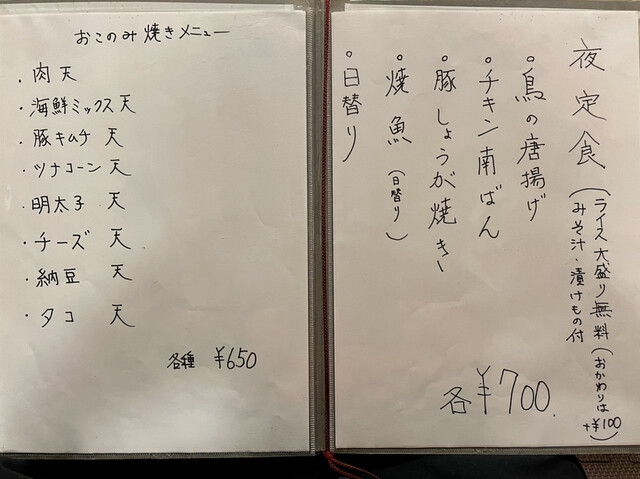 おこのみ焼きメニュー
・肉天
・海鮮ミックス天
・豚キムチ 天
・ツナコーン 天
・明太子 天
・チーズ 天
・納豆 天
・タコ 天
各種 ¥650
夜定食(ライス大盛り無料(おかわりは+¥100)
みそ汁・漬けもの付)
・鳥の唐揚げ
・チキン南ばん
・豚しょうが焼き
・焼魚(日替り)
・日替り
各¥700.